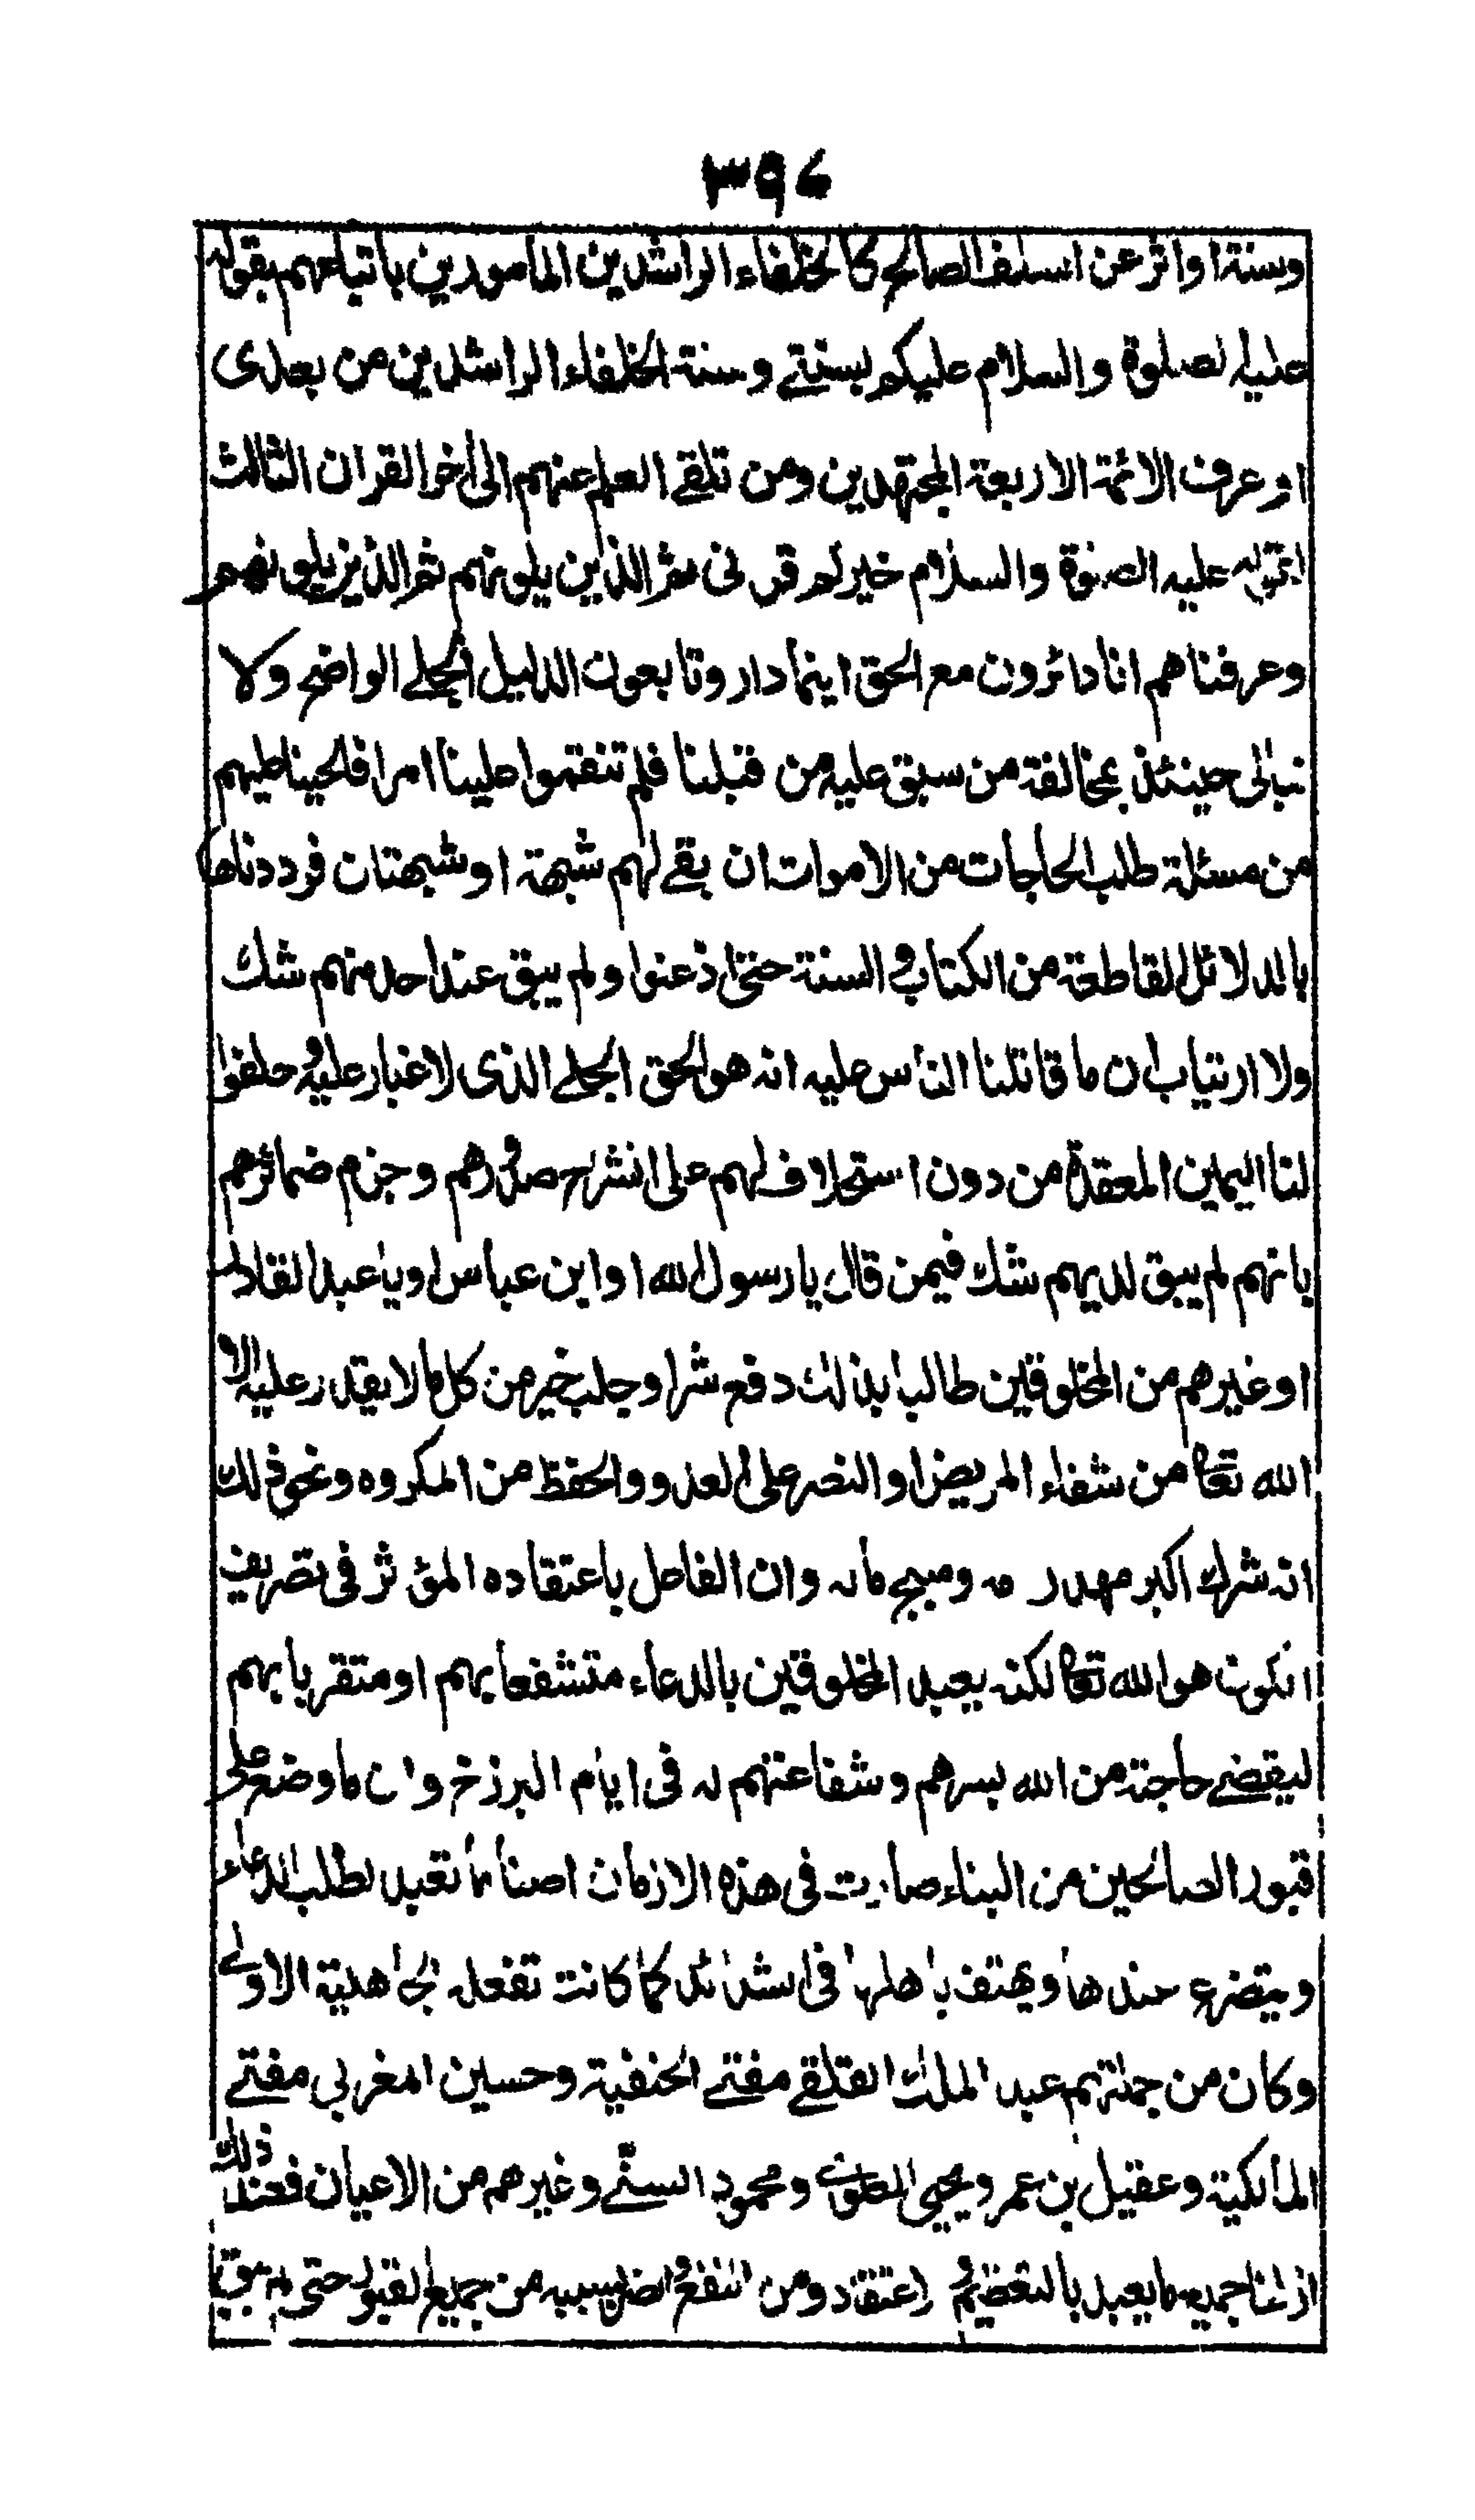 ٣٩٤
وسنة او اثر عن السلف الصالح كالخلفاء الراشدين المأمورين باتباعهم بقوله
عليه الصلوة والسلام عليكم بسنتي وسنة الخلفاء الراشدين من بعدى
او عرف الائمة الاربعة المجتهدين ومن تلقے العلم عنهم الى اخر القران الثالث
لقوله عليه الصلوة والسلام خيركم قرنى ثم الذين يلونهم ثم الذين يلونهم
وعرفناهم انا دائرون مع الحق اينما دار وتابعون الدليل الجلے الواضح ولا
نبالى حينئذ بمخالفة من سبق عليه من قبلنا فلم تنقموا علينا امرا فالحينا عليهم
من مسئلة طلب الحاجات من الاموات ان بقے لهم شبهة او شبهتان فرددناها
بالدلائل القاطعة من الكتاب والسنة حتى اذعنوا ولم يبق عند احد منهم شك
ولا ارتياب ان ما قاتلنا الناس عليه انه هو الحق الجلے الذى لا غبار عليه وحلفوا
لنا اليمين المعقدة من دون استحلاف لهم على انشراح صدورهم وجزم ضمائرهم
بانهم لم يبق لديهم شك فيمن قال يا رسول الله او ابن عباس او يا عبد القادر
او غيرهم من المخلوقين طالبا بذلك دفع شر او جلب خير من كل ما لا يقدر عليه الا
الله تعالى من شفاء المريض او النصر على العدو والحفظ من المكروه ونحو ذلك
انه شرك اكبر مهدر مه ومبيح ماله وان الفاعل باعتقاده المؤثر فى تصريف
الكون هو الله تعالى لكنه يعبد المخلوقين بالدعاء متشفعا بهم او متقربا بهم
ليقضے حاجته من الله بسرهم وشفاعتهم له فى ايام البرزخ وان ما وضع على
قبور الصالحين من البناء صارت فى هذه الازمان اصناما تعبد لطلب الدعاء
ويتضرع عندها ويهتف باهلها فى الشدائد كما كانت تفعله الجاهلية الاولے
وكان من جملتهم عبد الملك القلقے مفتے الحنفية وحسين المغربى مفتے
المالكية وعقيل بن عمر ويحيى العلوى ومحمود السنے وغيرهم من الاعيان فعند ذلك
ازلنا جميع ما يعبد بالتعظيم و اعتقاد ومن النفع والضر بسببه من جميع القبور حتى لم يبق